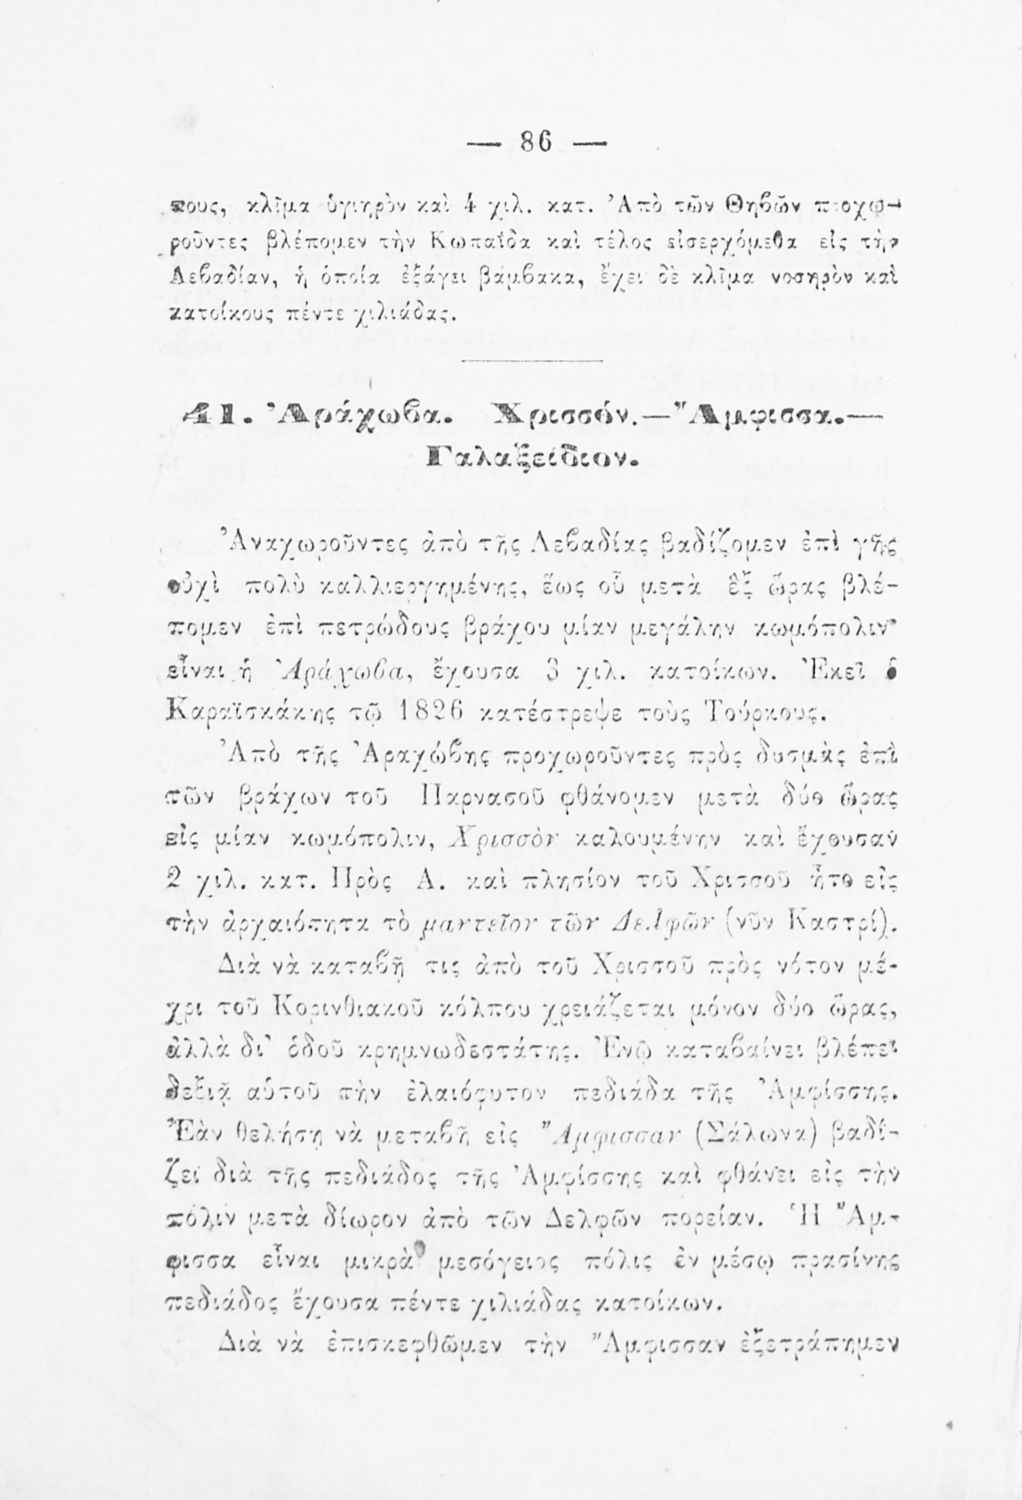 — 86 —
πους, κλῖμα ὑγιηρὸν καὶ 4 χιλ. κατ. Ἀπὸ τῶν Θηβῶν προχω-
ροῦντες βλέπομεν τὴν Κωπαΐδα καὶ τέλος εἰσερχόμεθα εἰς τὴν
Λεβαδίαν, ἡ ὁποία ἐξάγει βάμβακα, ἔχει δὲ κλῖμα νοσηρὸν καὶ
κατοίκους πέντε χιλιάδας.
41. Ἀράχωβα. Χρισσόν.—Ἄμφισσα.—
Γαλαξείδιον.
Ἀναχωροῦντες ἀπὸ τῆς Λεβαδίας βαδίζομεν ἐπὶ γῆς
οὐχὶ πολὺ καλλιεργημένης, ἕως οὗ μετὰ ἓξ ὥρας βλέ-
πομεν ἐπὶ πετρώδους βράχου μίαν μεγάλην κωμόπολιν·
εἶναι ἡ Ἀράχωβα, ἔχουσα 3 χιλ. κατοίκων. Ἐκεῖ ὁ
Καραϊσκάκης τῷ 1826 κατέστρεψε τοὺς Τούρκους.
Ἀπὸ τῆς Ἀραχώβης προχωροῦντες πρὸς δυσμὰς ἐπὶ
τῶν βράχων τοῦ Παρνασοῦ φθάνομεν μετὰ δύο ὥρας
εἰς μίαν κωμόπολιν, Χρισσὸν καλουμένην καὶ ἔχουσαν
2 χιλ. κατ. Πρὸς Α. καὶ πλησίον τοῦ Χρισσοῦ ἦτο εἰς
τὴν ἀρχαιότητα τὸ μαντεῖον τῶν Δελφῶν (νῦν Καστρί).
Διὰ νὰ καταβῇ τις ἀπὸ τοῦ Χρισσοῦ πρὸς νότον μέ-
χρι τοῦ Κορινθιακοῦ κόλπου χρειάζεται μόνον δύο ὥρας,
ἀλλὰ δι' ὁδοῦ κρημνωδεστάτης. Ἐνῷ καταβαίνει βλέπει
δεξιᾷ αὑτοῦ τὴν ἐλαιόφυτον πεδιάδα τῆς Ἀμφίσσης.
Ἐὰν θελήσῃ νὰ μεταβῇ εἰς Ἄμφισσαν (Σάλωνα) βαδί-
ζει διὰ τῆς πεδιάδος τῆς Ἀμφίσσης καὶ φθάνει εἰς τὴν
πόλιν μετὰ δίωρον ἀπὸ τῶν Δελφῶν πορείαν. Ἡ Ἄμ-
φισσα εἶναι μικρὰ μεσόγειος πόλις ἐν μέσῳ πρασίνης
πεδιάδος ἔχουσα πέντε χιλιάδας κατοίκων.
Διὰ νὰ ἐπισκεφθῶμεν τὴν Ἄμφισσαν ἐξετράπημεν